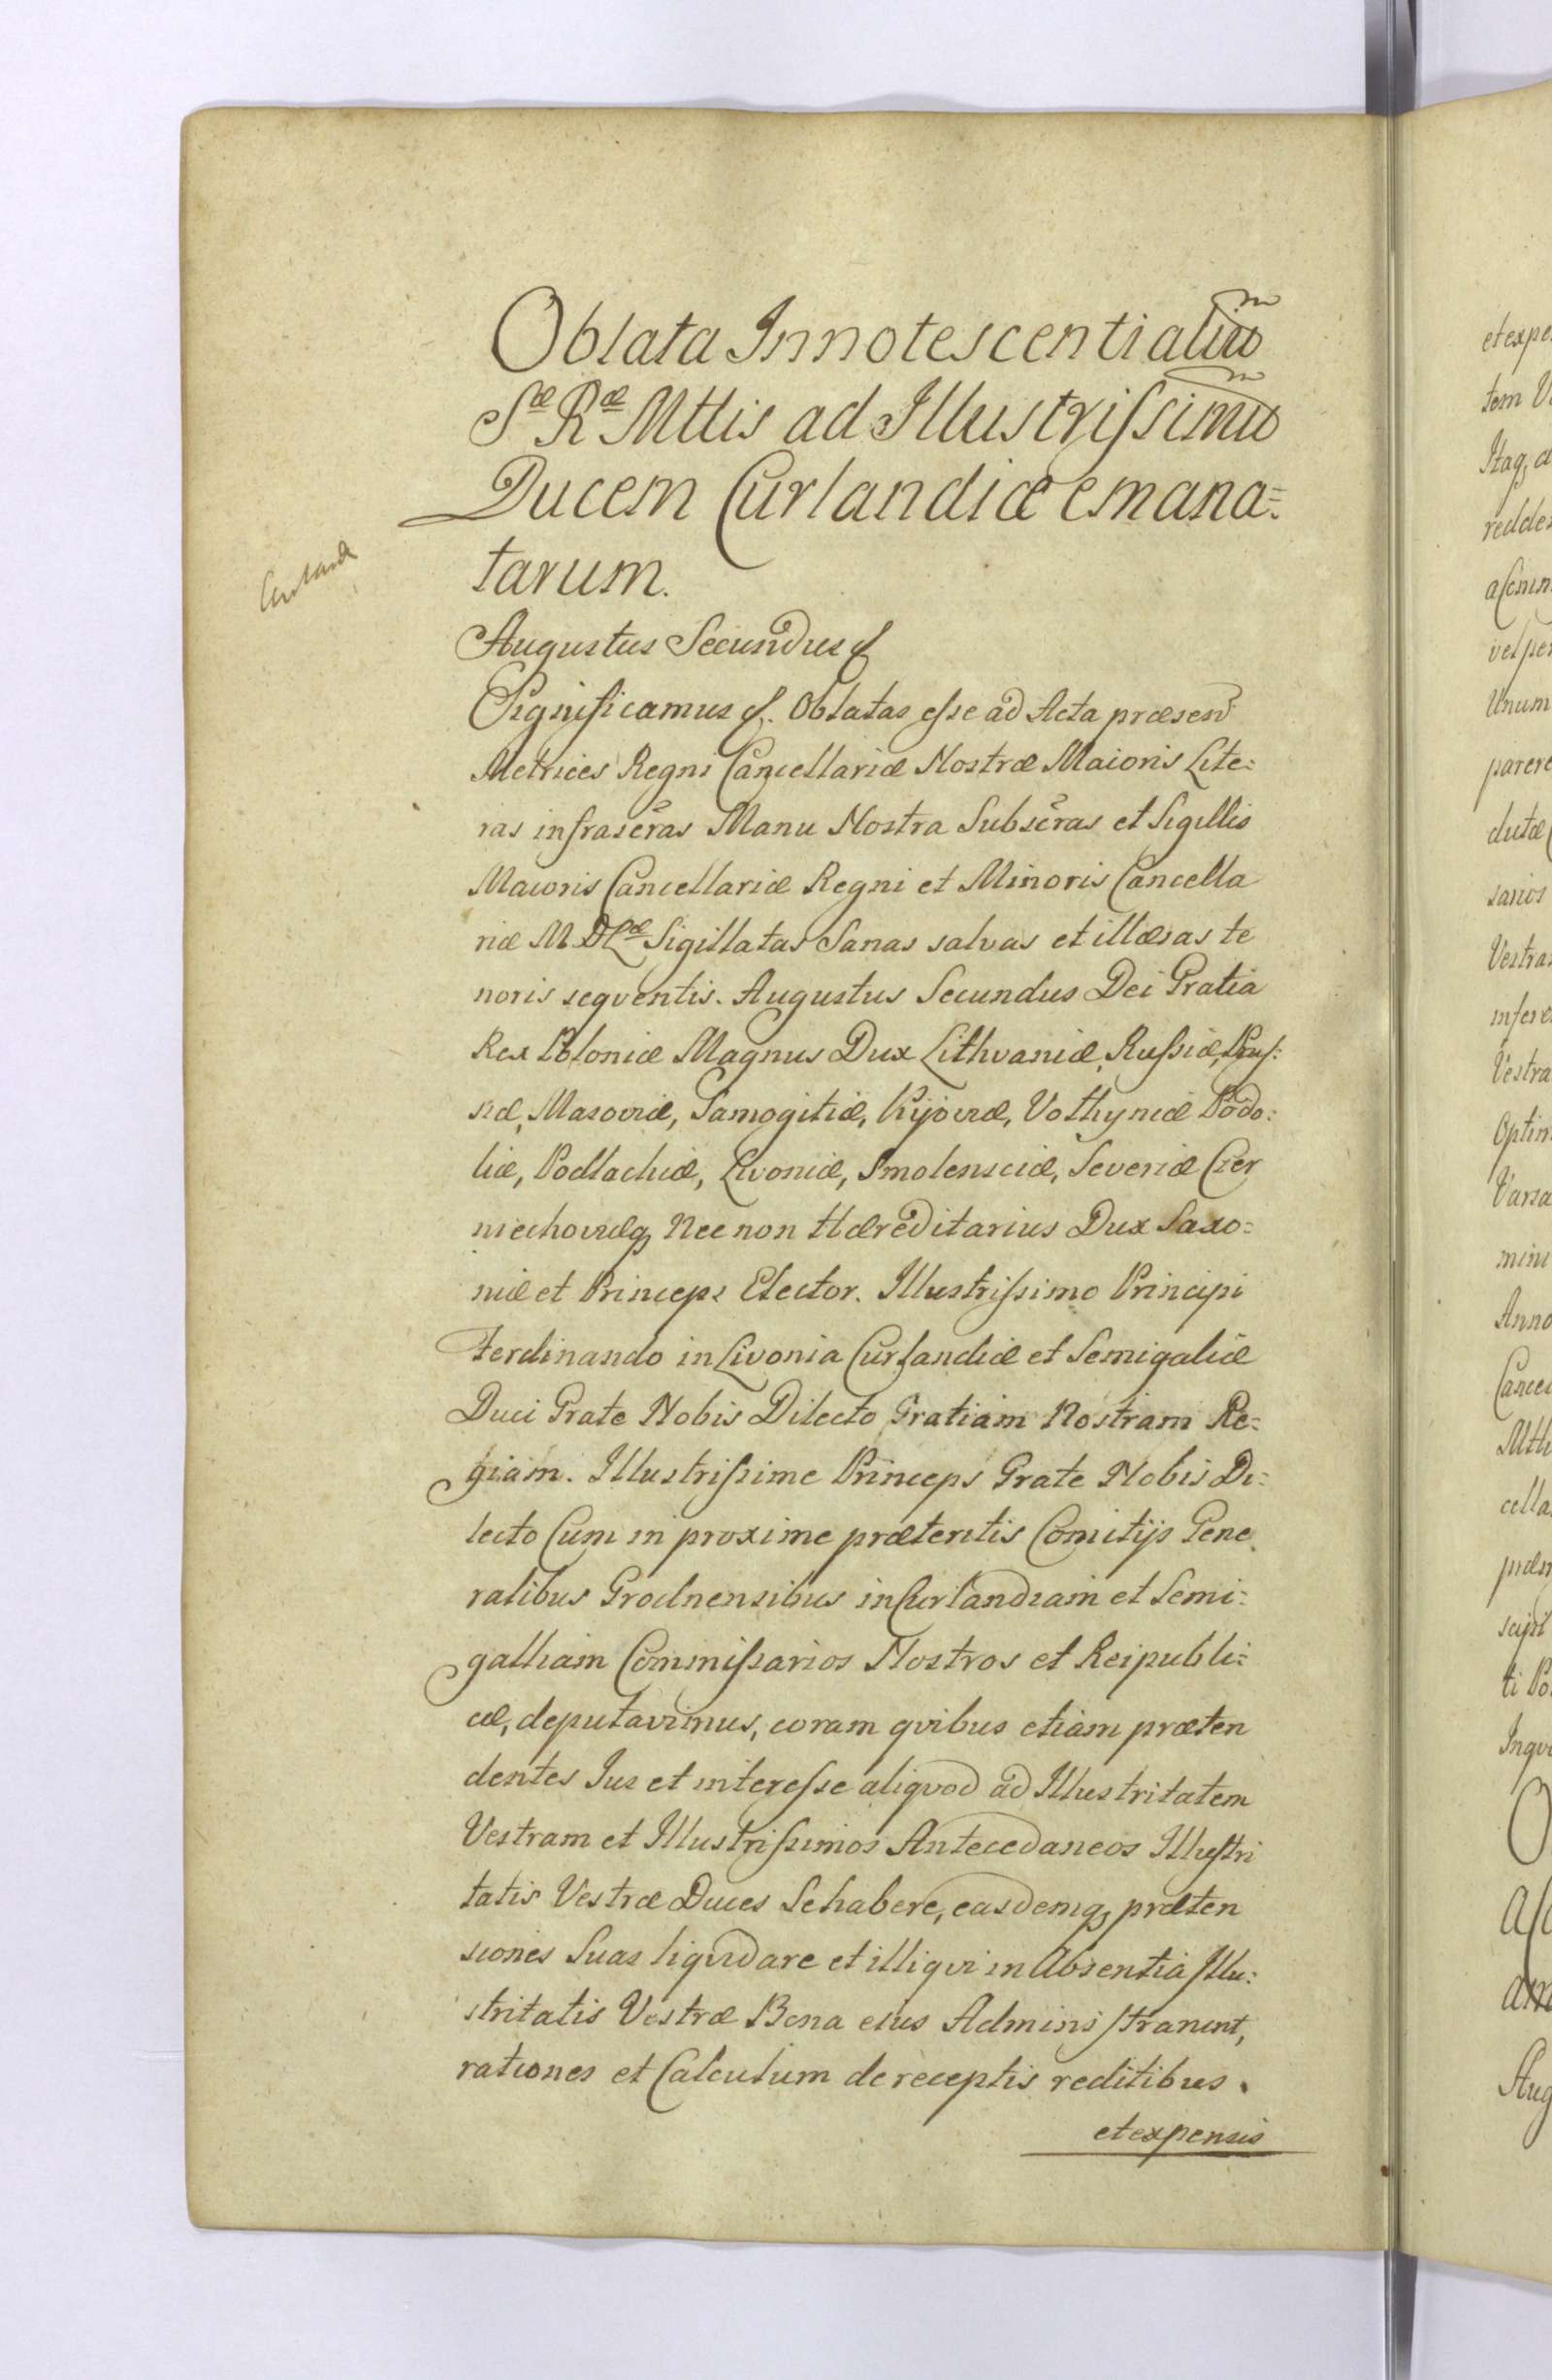 Oblata Innotescentialium
Sæ Ræ Mttis ad Illustrissimum
Ducem Curlandiæ emana=
tarum.
Augustus Secundus
Significamus Oblatas esse ad Acta præsen
Metrices Regni Cancellariæ Nostræ Maioris Lite=
ras infrascras Manu Nostra Subscras et Sigillis
Maioris Cancellariæ Regni et Minoris Cancella
riæ M D Læ Sigillatas Sanas salvas et illæsas te
noris seqventis. Augustus Secundus Dei Gratia
Rex Poloniæ Magnus Dux Lithvaniæ, Russiæ, Prus:
siæ, Masoviæ, Samogitiæ, Kijoviæ, Volhyniæ Podo:
liæ, Podlachiæ, Livoniæ, Smolensciæ, Severiæ Czer
niechoviæq Nec non Hæreditarius Dux Saxo=
niæ et Princeps Elector. Illustrissimo Principi
Ferdinando in Livonia Curlandiæ et Semigaliæ
Duci Grate Nobis Dilecto Gratiam Nostram Re=
giam. Illustrissime Princeps Grate Nobis Di=
lecto Cum in proxime præteritis Comitijs Gene
ralibus Grodnensibus in Curlandiam et Semi=
galliam Commissarios Nostros et Reipubli=
cæ, deputavimus, coram qvibus etiam præten
dentes Jus et interesse aliqvod ad Illustritatem
Vestram et Illustrissimos Antecedaneos Illustri
tatis Vestræ Duces Sehabere, easdemq præten
siones Suas liqvidare et illi qvi in Absentia Illu=
stritatis Vestræ Bona eius Administrarunt,
rationes et Calculum de receptis reditibus
et expensis